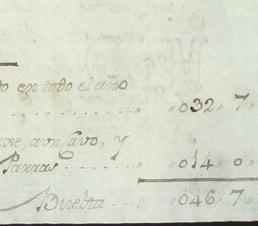 do en todo el año
. . . . . . . . . " "032" 7"
y
Parras . . . . . " "014" 0"
Buelta . . . . " "046" 7"